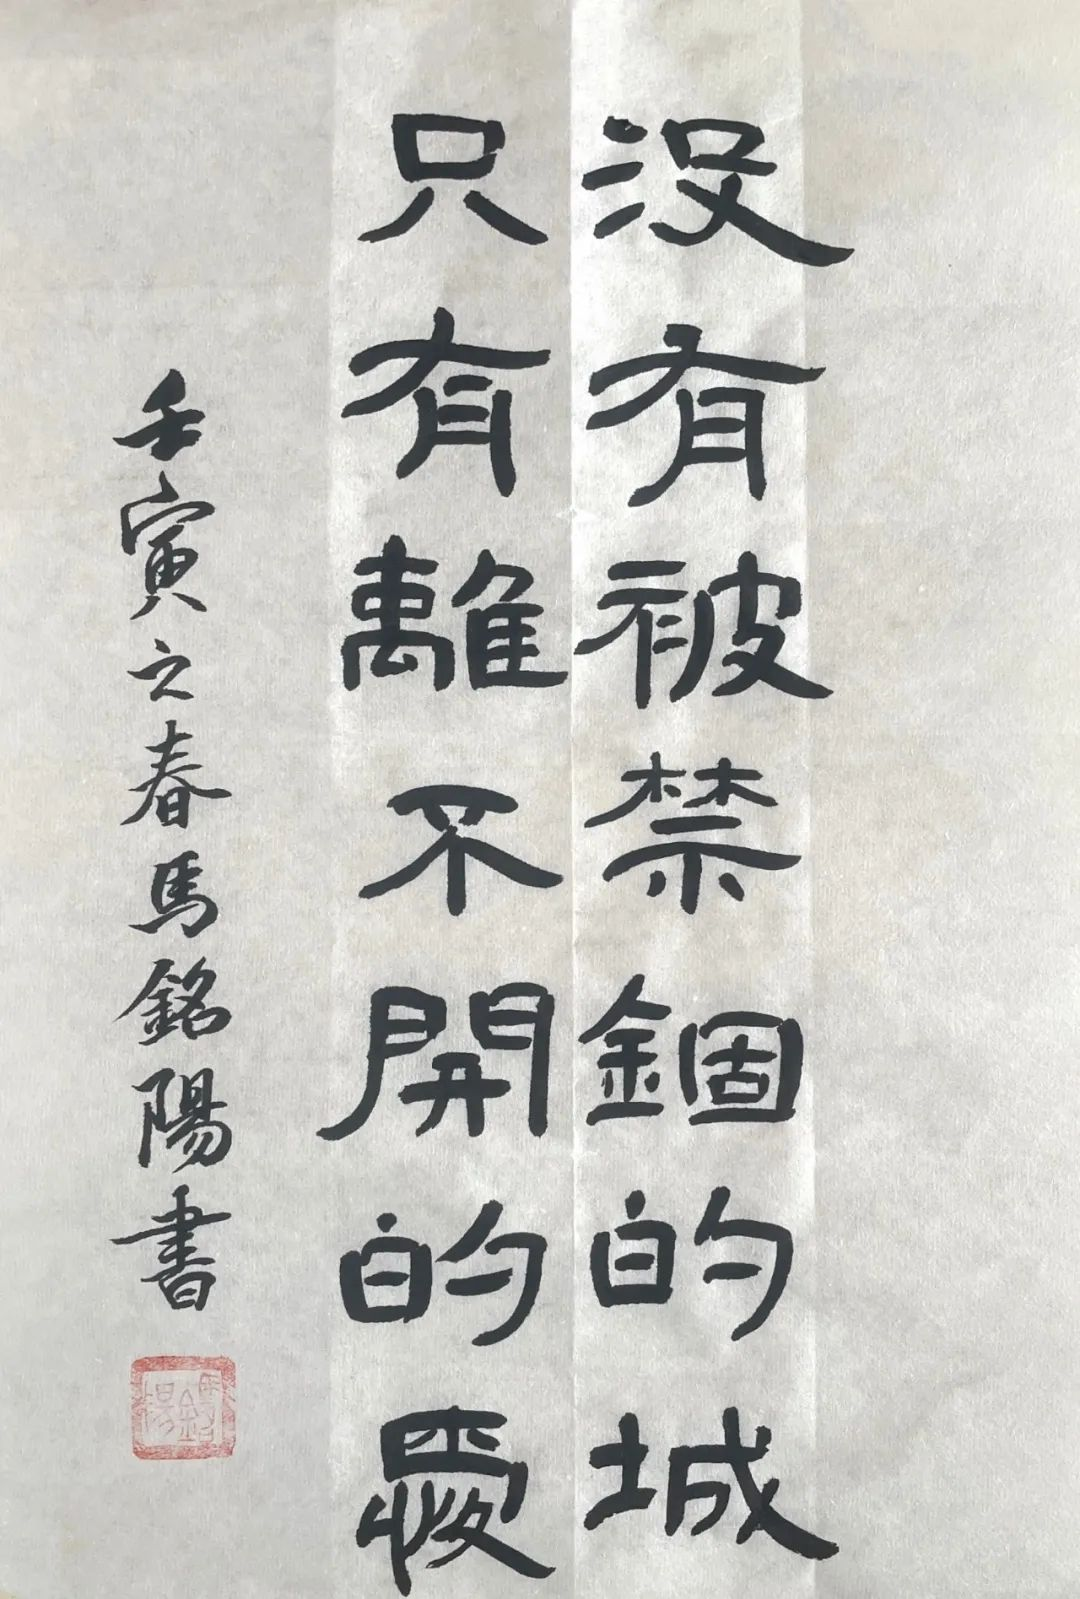 没有被禁錮的城
只有離不開的愛
壬寅之春馬銘陽書
馬銘陽